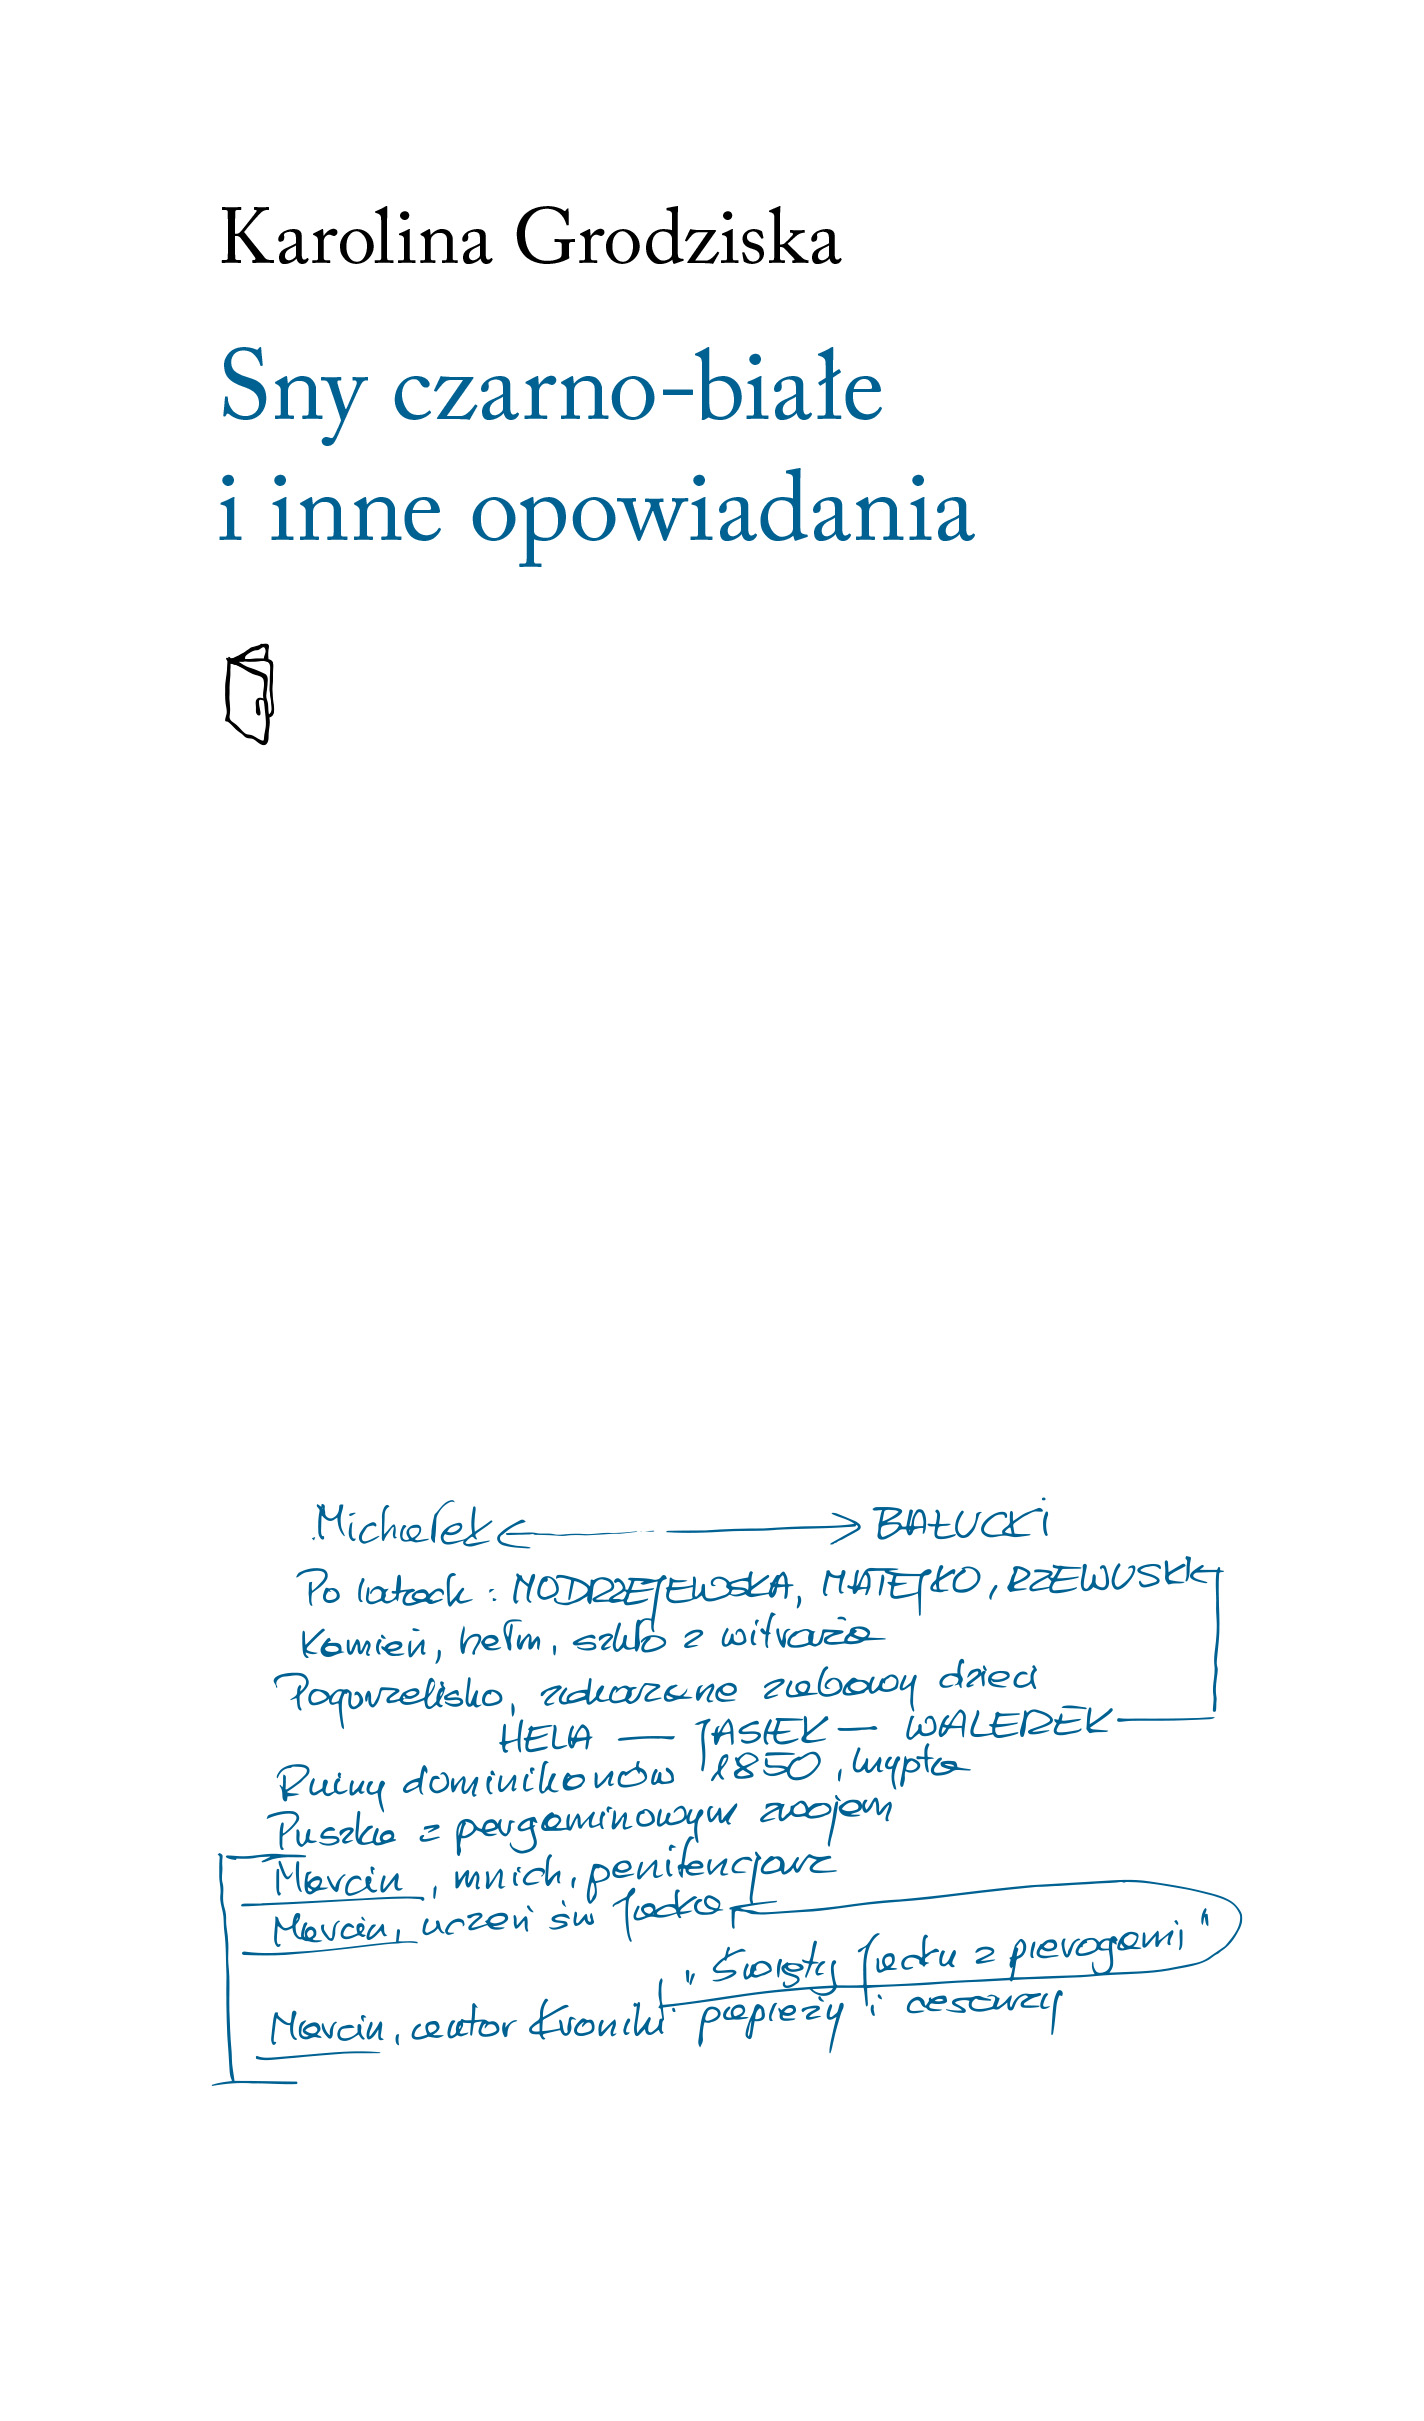 Karolina Grodziska
Sny czarno-białe
i inne opowiadania
Michałek BAŁUCKI
Po latach: MODRZEJEWSKA, MATEJKO, RZEWUSKI
Kamień, hełm, szkło z witraża
Pogorzelisko, zakazane zabawy dzieci
HELA — JASIEK — WALEREK
Ruiny dominikanów 1850, krypta
Puszka z pergaminowym zwojem
Marcin, mnich, penitencjarz
Marcin, uczeń św Jacka
"Święty Jacku z pierogami"
Marcin, autor Kroniki papieży i cesarzy